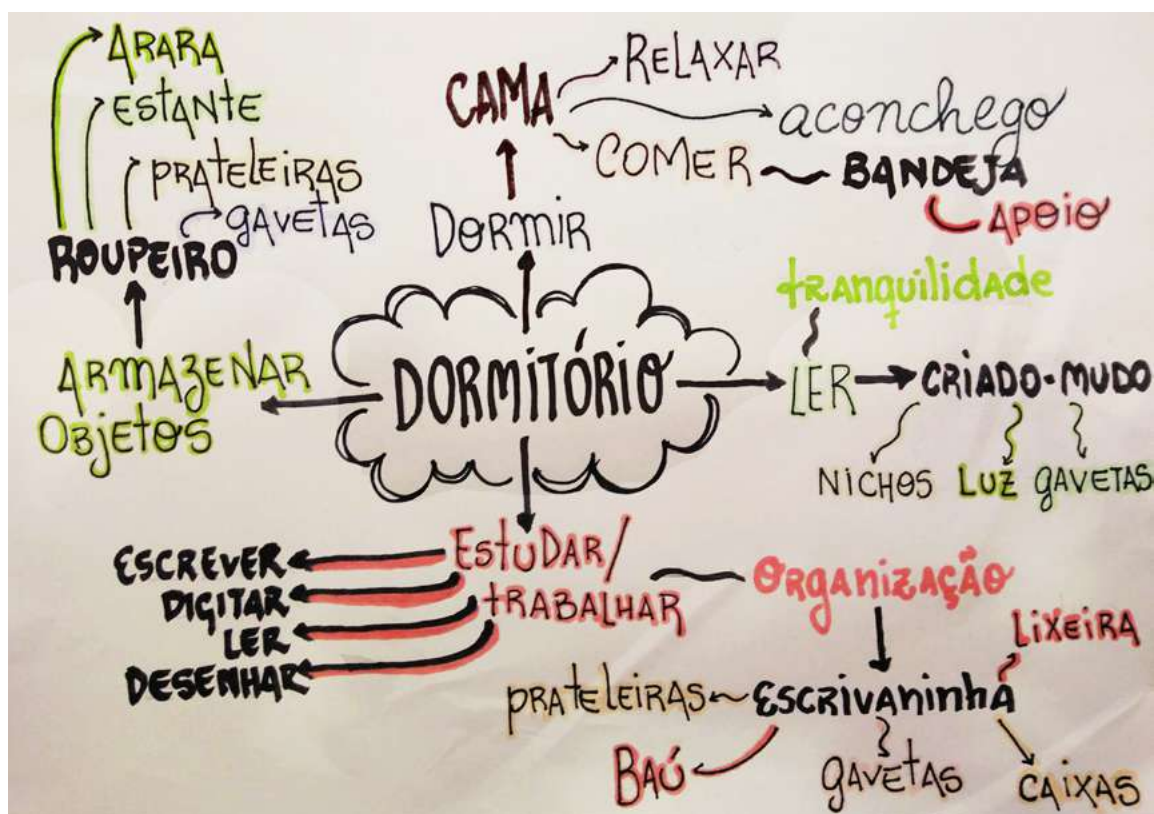 ARARA
ESTANTE
PRATELEIRAS
GAVETAS
ROUPEIRO
ARMAZENAR
OBJETOS
CAMA
RELAXAR
aconchego
COMER
BANDEJA
APOIO
DORMIR
DORMITÓRIO
tranquilidade
LER
CRIADO-MUDO
NICHOS
LUZ
GAVETAS
ESTUDAR/
TRABALHAR
ESCREVER
DIGITAR
LER
DESENHAR
ORGANIZAÇÃO
LIXEIRA
PRATELEIRAS
ESCRIVANINHA
BAÚ
GAVETAS
CAIXAS